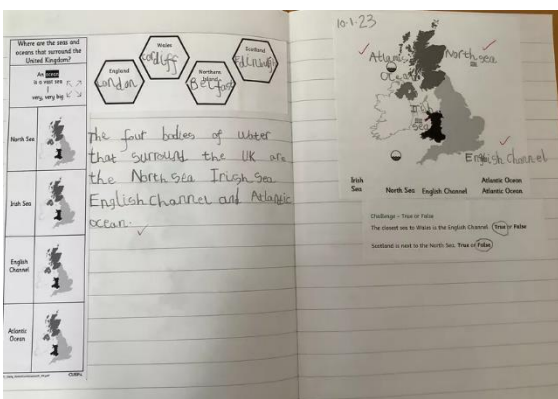 Where are the seas and
oceans that surround the
United Kingdom?
An ocean
is a vast sea
very, very big
North Sea
Irish Sea
English
Channel
Atlantic
Ocean
England
London
Wales
Cardiff
Northern
Ireland
Belfast
Scotland
Edinburgh
The four bodies of water
that surround the UK are
the North Sea Irish Sea
English Channel and Atlantic
ocean.
10.1.23
Atlantic
Ocean
North sea
Irish
Sea
English Channel
Irish
Sea
North Sea English Channel
Atlantic Ocean
Atlantic Ocean
Challenge – True or False
The closest sea to Wales is the English Channel. True or False
Scotland is next to the North Sea. True or False